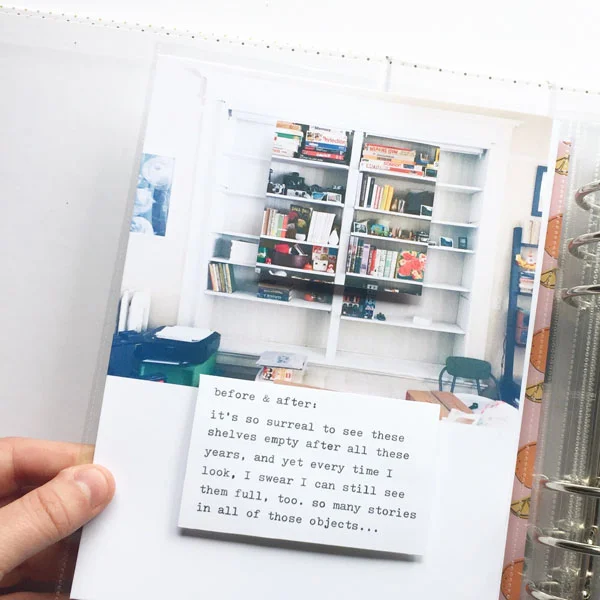 before & after:
it's so surreal to see these
shelves empty after all these
years, and yet every time I
look, I swear I can still see
them full, too. so many stories
in all of those objects...